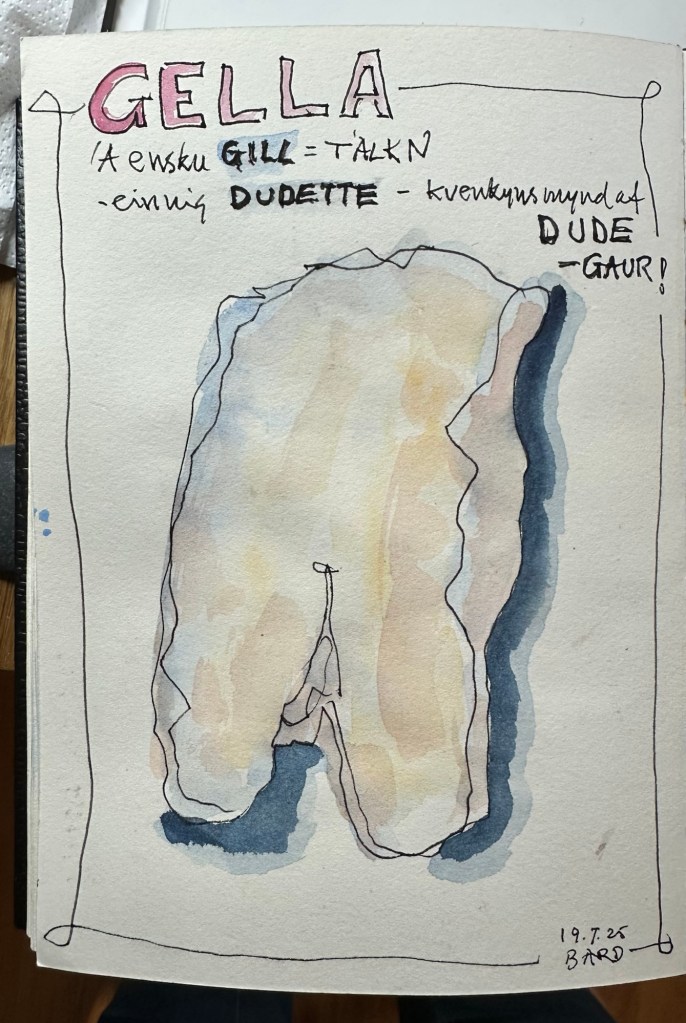 GELLA
'A ensku GILL = TÁLKN
- einnig DUDETTE - kvenkynsmynd af
DUDE
- GAUR!
19.7.25
BARÐ